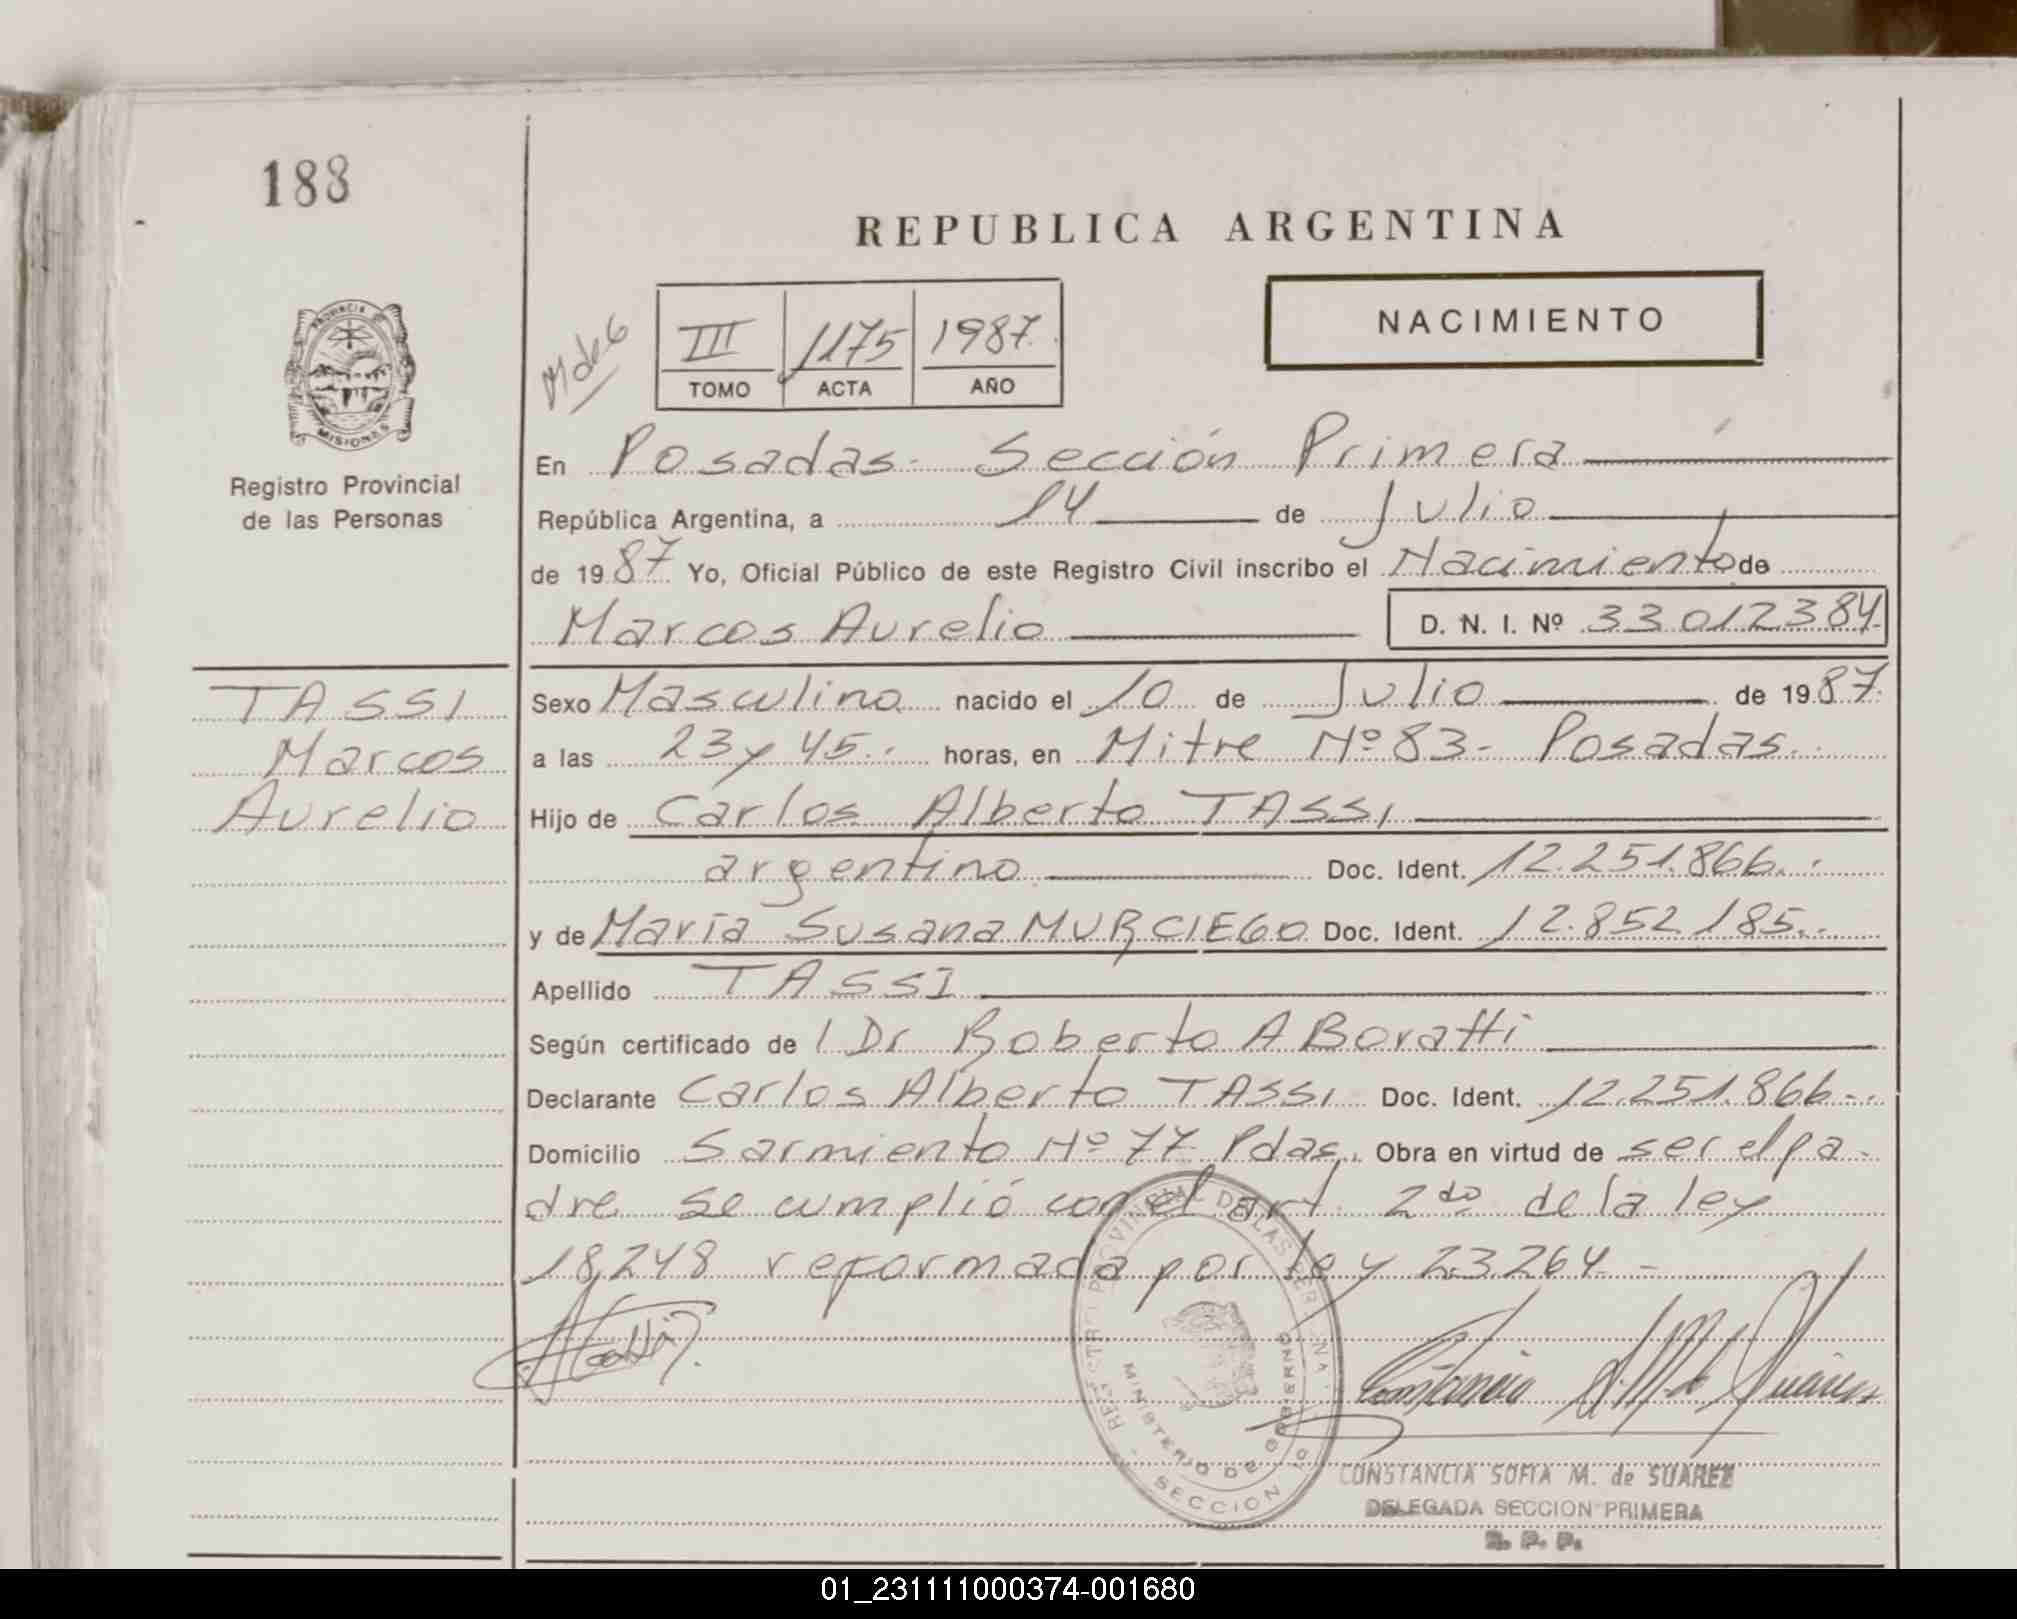 188
REPUBLICA ARGENTINA
PROVINCIA DE
MISIONES
Registro Provincial
de las Personas
M de 6
III 1175 1987
TOMO ACTA AÑO
NACIMIENTO
En Posadas - Sección Primera
República Argentina, a 14 de Julio
de 1987 Yo, Oficial Público de este Registro Civil inscribo el Nacimiento de
Marcos Aurelio D. N. I. Nº 33 012384
TASSI
Marcos
Aurelio
Sexo Masculino nacido el 10 de Julio de 1987.
a las 23 y 45.. horas, en Mitre Nº 83 - Posadas.
Hijo de Carlos Alberto TASSI
argentino Doc. Ident. 12.251.866.
y de María Susana MURCIEGO Doc. Ident. 12.852.185.
Apellido TASSI
Según certificado de l Dr Roberto A Boratti
Declarante Carlos Alberto TASSI Doc. Ident. 12.251.866-
Domicilio Sarmiento Nº 77 Pdas. Obra en virtud de ser el pa-
dre se cumplió con el art. 2do de la ley
18.248 reformada por ley 23.264 -
REGISTRO PROVINCIAL DE LAS PERSONAS
MINISTERIO DE GOBIERNO
SECCION
Constancia S. M. de Suárez
CONSTANCIA SOFIA M. de SUAREZ
DELEGADA SECCION PRIMERA
R. P. P.
01_231111000374-001680